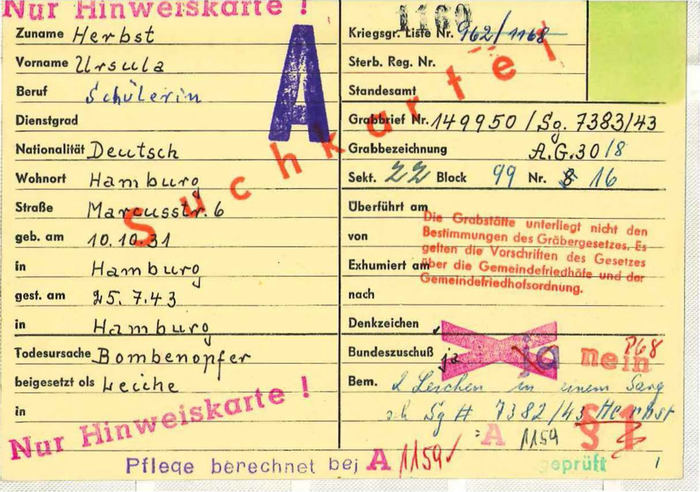 Nur Hinweiskarte !
Zuname Herbst
Vorname Ursula
Beruf Schülerin
Dienstgrad
Nationalität Deutsch
Wohnort Hamburg
Straße Marcusstr. 6
geb. am 10.10.31
in Hamburg
gest. am 25.7.43
in Hamburg
Todesursache Bombenopfer
beigesetzt als Leiche
in
Nur Hinweiskarte !
A
Suchkartei
1160
Kriegsgr. Liste Nr. 962/1168
Sterb. Reg. Nr.
Standesamt
Grabbrief Nr. 149950 / Sg. 7383/43
Grabbezeichnung A.G.30/8
Sekt. 22 Block 99 Nr. 8 16
Überführt am
von
Exhumiert am
nach
Die Grabstätte unterliegt nicht den
Bestimmungen des Gräbergesetzes. Es
gelten die Vorschriften des Gesetzes
über die Gemeindefriedhöfe und der
Gemeindefriedhofsordnung.
Denkzeichen
Bundeszuschuß ja ja nein P68
Bem. 2 Leichen in einem Sarg
Sg # 7382/43 Herbst
A 1159 § 1
Pflege berechnet bei A 1159 geprüft